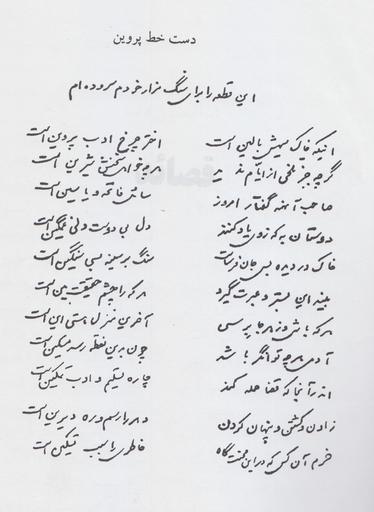 دست خط پروین
این قطعه را برای سنگ مزار خودم سروده‌ام
اینکه خاک سیهش بالین است اختر چرخ ادب پروین است
گرچه جز تلخی از ایام ندید هرچه خواهی سخنش شیرین است
صاحب آنهمه گفتار امروز سائل فاتحه و یاسین است
دوستان به که ز وی یاد کنند دل بی دوست دلی غمگین است
خاک در دیده بسی جان فرساست سنگ بر سینه بسی سنگین است
بیند این بستر و عبرت گیرد هر که را چشم حقیقت بین است
هر که باشی و ز هر جا برسی آخرین منزل هستی این است
آدمی هرچه توانگر باشد چون بدین نقطه رسد مسکین است
اندر آنجا که قضا حمله کند چاره تسلیم و ادب تمکین است
زادن و کشتن و پنهان کردن دهر را رسم و ره دیرین است
خرم آن کس که در این محنت‌گاه خاطری را سبب تسکین است